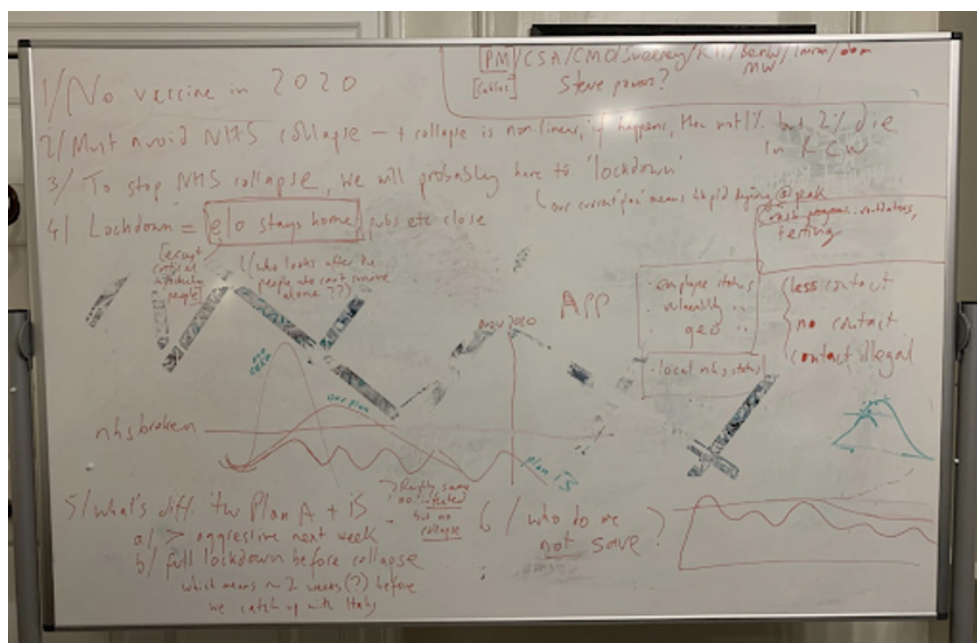 [PM]/CSA/CMO/Sweeney/ /BenW/Imran/dom
[Cabsec] MW
Steve powers?
1/ No vaccine in 2020
2/ Must avoid NHS collapse – + collapse is non linear, if happens, then not 1% but 2% die
in RCW
3/ To stop NHS collapse, we will probably have to 'lockdown'
our current 'plan' means dying @ peak
4/ Lockdown = e/o stays home, pubs etc close
Crash programs: ventilators,
testing
[except
critical
people]
(who looks after the
people who can't survive
alone??)
APP
· employee status
· vulnerability "
· geo "
· local nhs status
less contact
no contact
contact illegal
Nov 2020
our plan
nhs broken
plan iS
5/ What's diff. tw Plan A + iS
a/ > aggressive next week
b/ full lockdown before collapse
which means ~ 2 weeks (?) before
we catch up with Italy
? Roughly same
no. infected
but no
collapse
6/ who do we
not save?